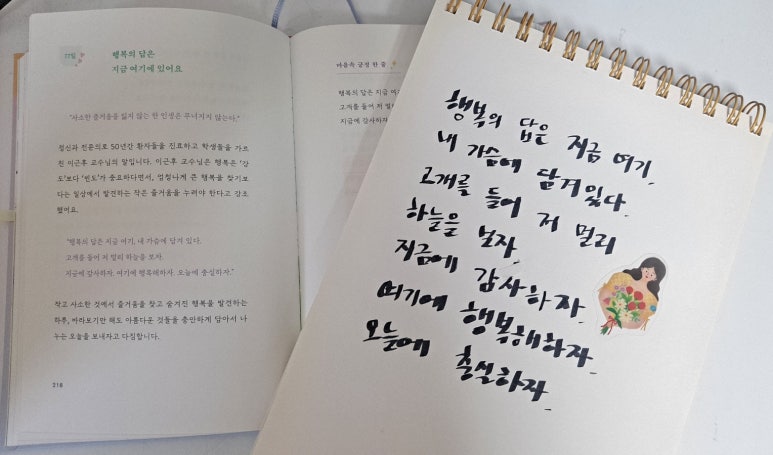 77일
행복의 답은
지금 여기에 있어요
"사소한 즐거움을 잃지 않는 한 인생은 무너지지 않는다."
정신과 전문의로 50년간 환자들을 진료하고 학생들을 가르
친 이근후 교수님의 말입니다. 이근후 교수님은 행복은 '강
도'보다 '빈도'가 중요하다면서, 엄청나게 큰 행복을 찾기보
다는 일상에서 발견하는 작은 즐거움을 누려야 한다고 강조
했어요.
"행복의 답은 지금 여기, 내 가슴에 담겨 있다.
고개를 들어 저 멀리 하늘을 보자.
지금에 감사하자. 여기에 행복해하자. 오늘에 충실하자."
작고 사소한 것에서 즐거움을 찾고 숨겨진 행복을 발견하는
하루, 바라보기만 해도 아름다운 것들을 충만하게 담아서 나
누는 오늘을 보내자고 다짐합니다.
218
마음속 긍정 한 줄
행복의 답은 지금 여
고개를 들어 저 멀
지금에 감사하자
행복의 답은 지금 여기,
내 가슴에 담겨있다.
고개를 들어 저 멀리
하늘을 보자.
지금에 감사하자.
여기에 행복해하자.
오늘에 충실하자.